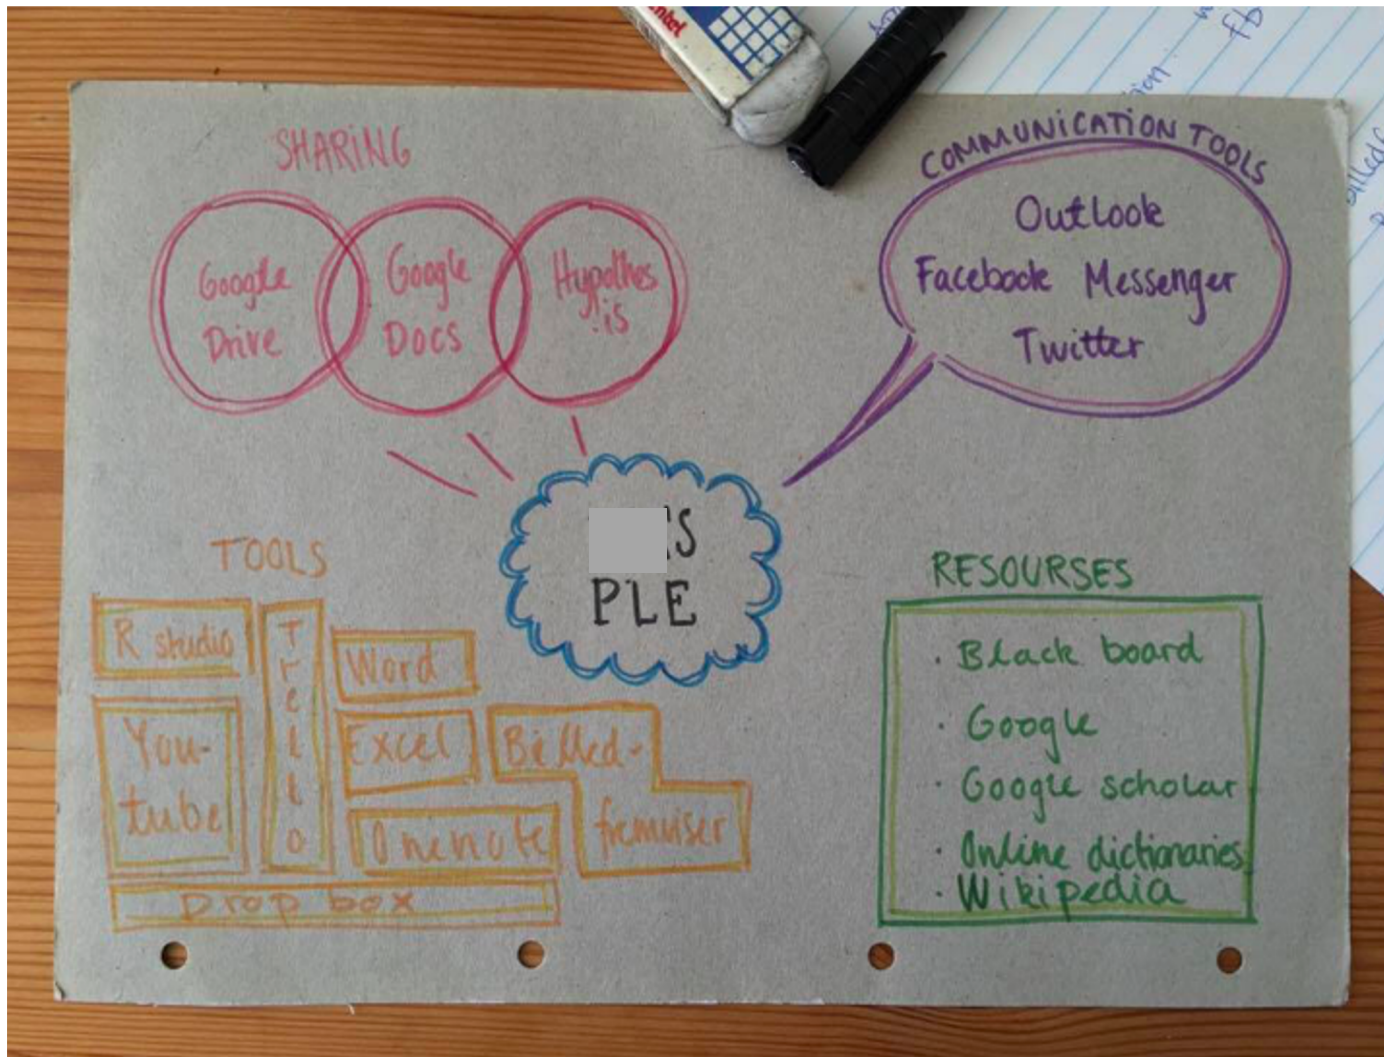 SHARING
Google
Drive
Google
Docs
Hypothes
.is
COMMUNICATION TOOLS
Outlook
Facebook Messenger
Twitter
S
PLE
TOOLS
R studio
Trello
Word
You-
tube
Excel
Billed-
fremviser
Onenote
Drop box
RESOURSES
· Black board
· Google
· Google scholar
· Online dictionaries
· Wikipedia